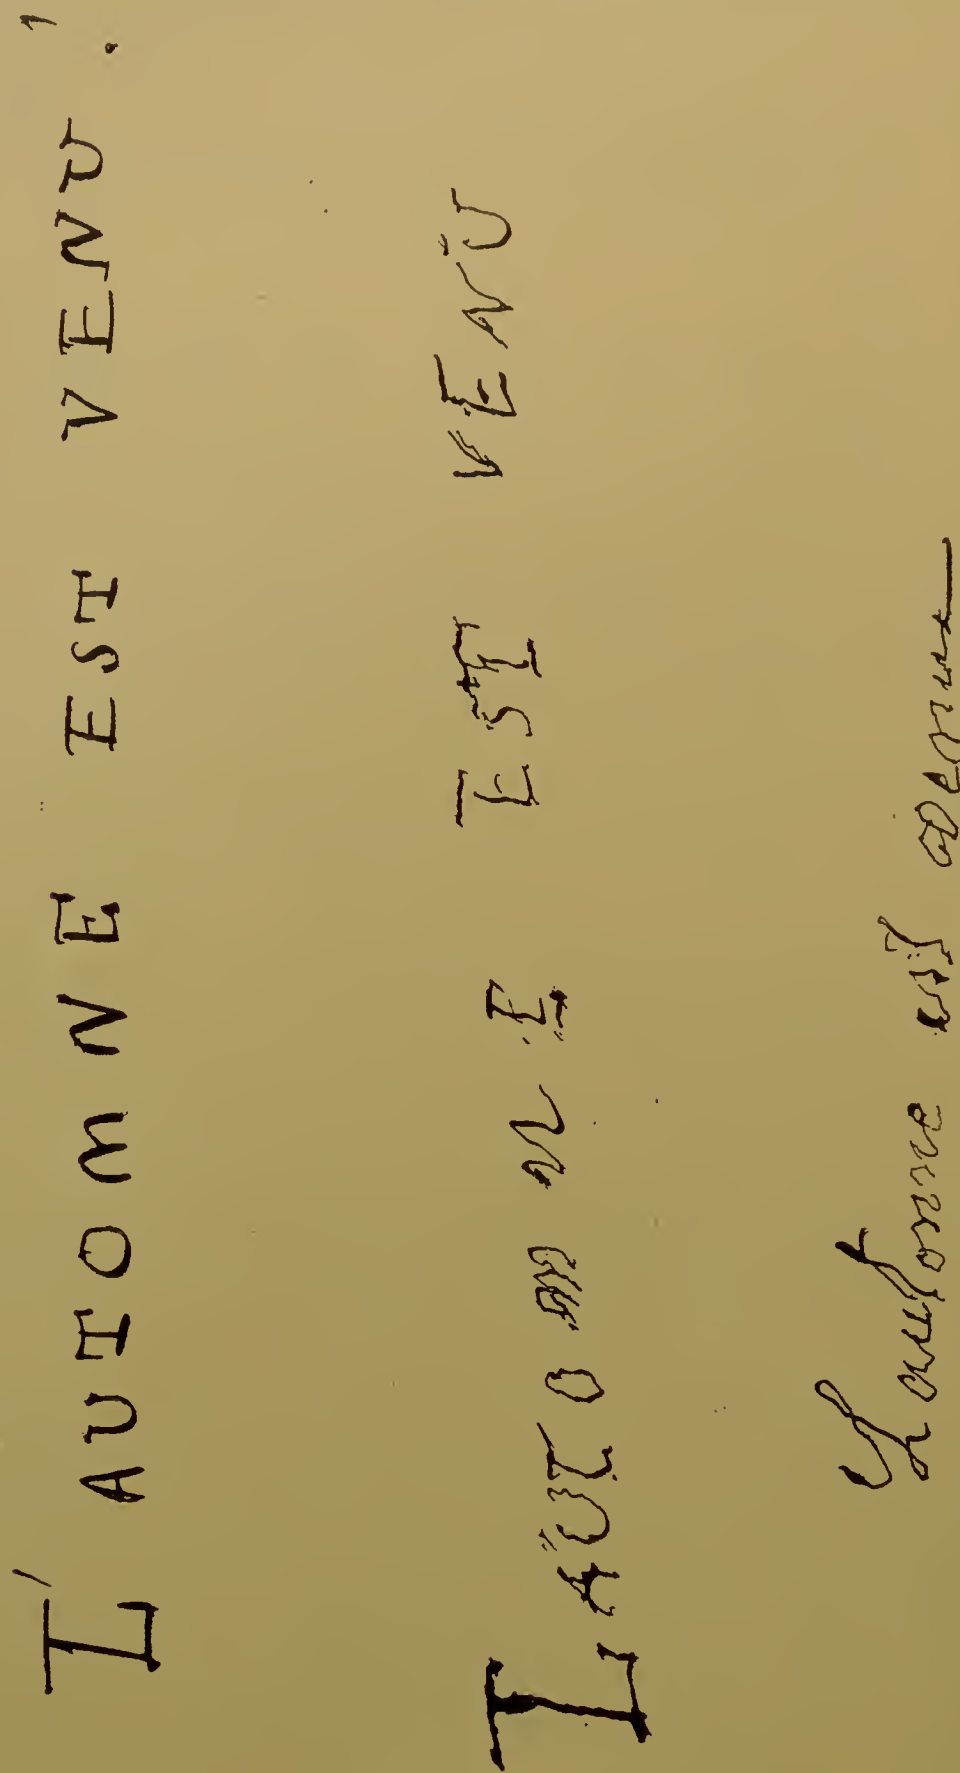 L'AUTOMNE EST VENU.
LAUTOMNE EST VENU
Lautomne est venu